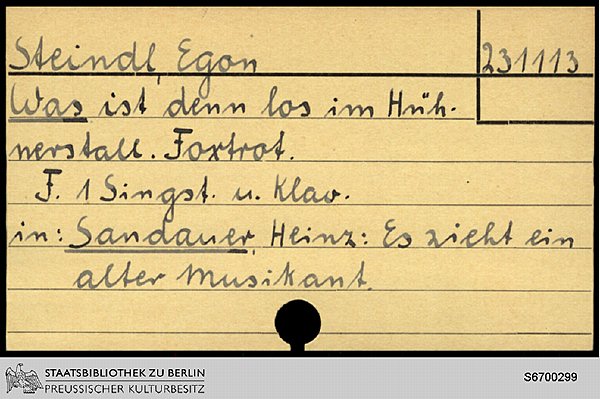 Steindl, Egon
231113
Was ist denn los im Hüh-
nerstall. Foxtrot.
F. 1 Singst. u. Klav.
in: Sandauer, Heinz: Es zieht ein
alter Musikant.
STAATSBIBLIOTHEK ZU BERLIN
PREUSSISCHER KULTURBESITZ
S6700299